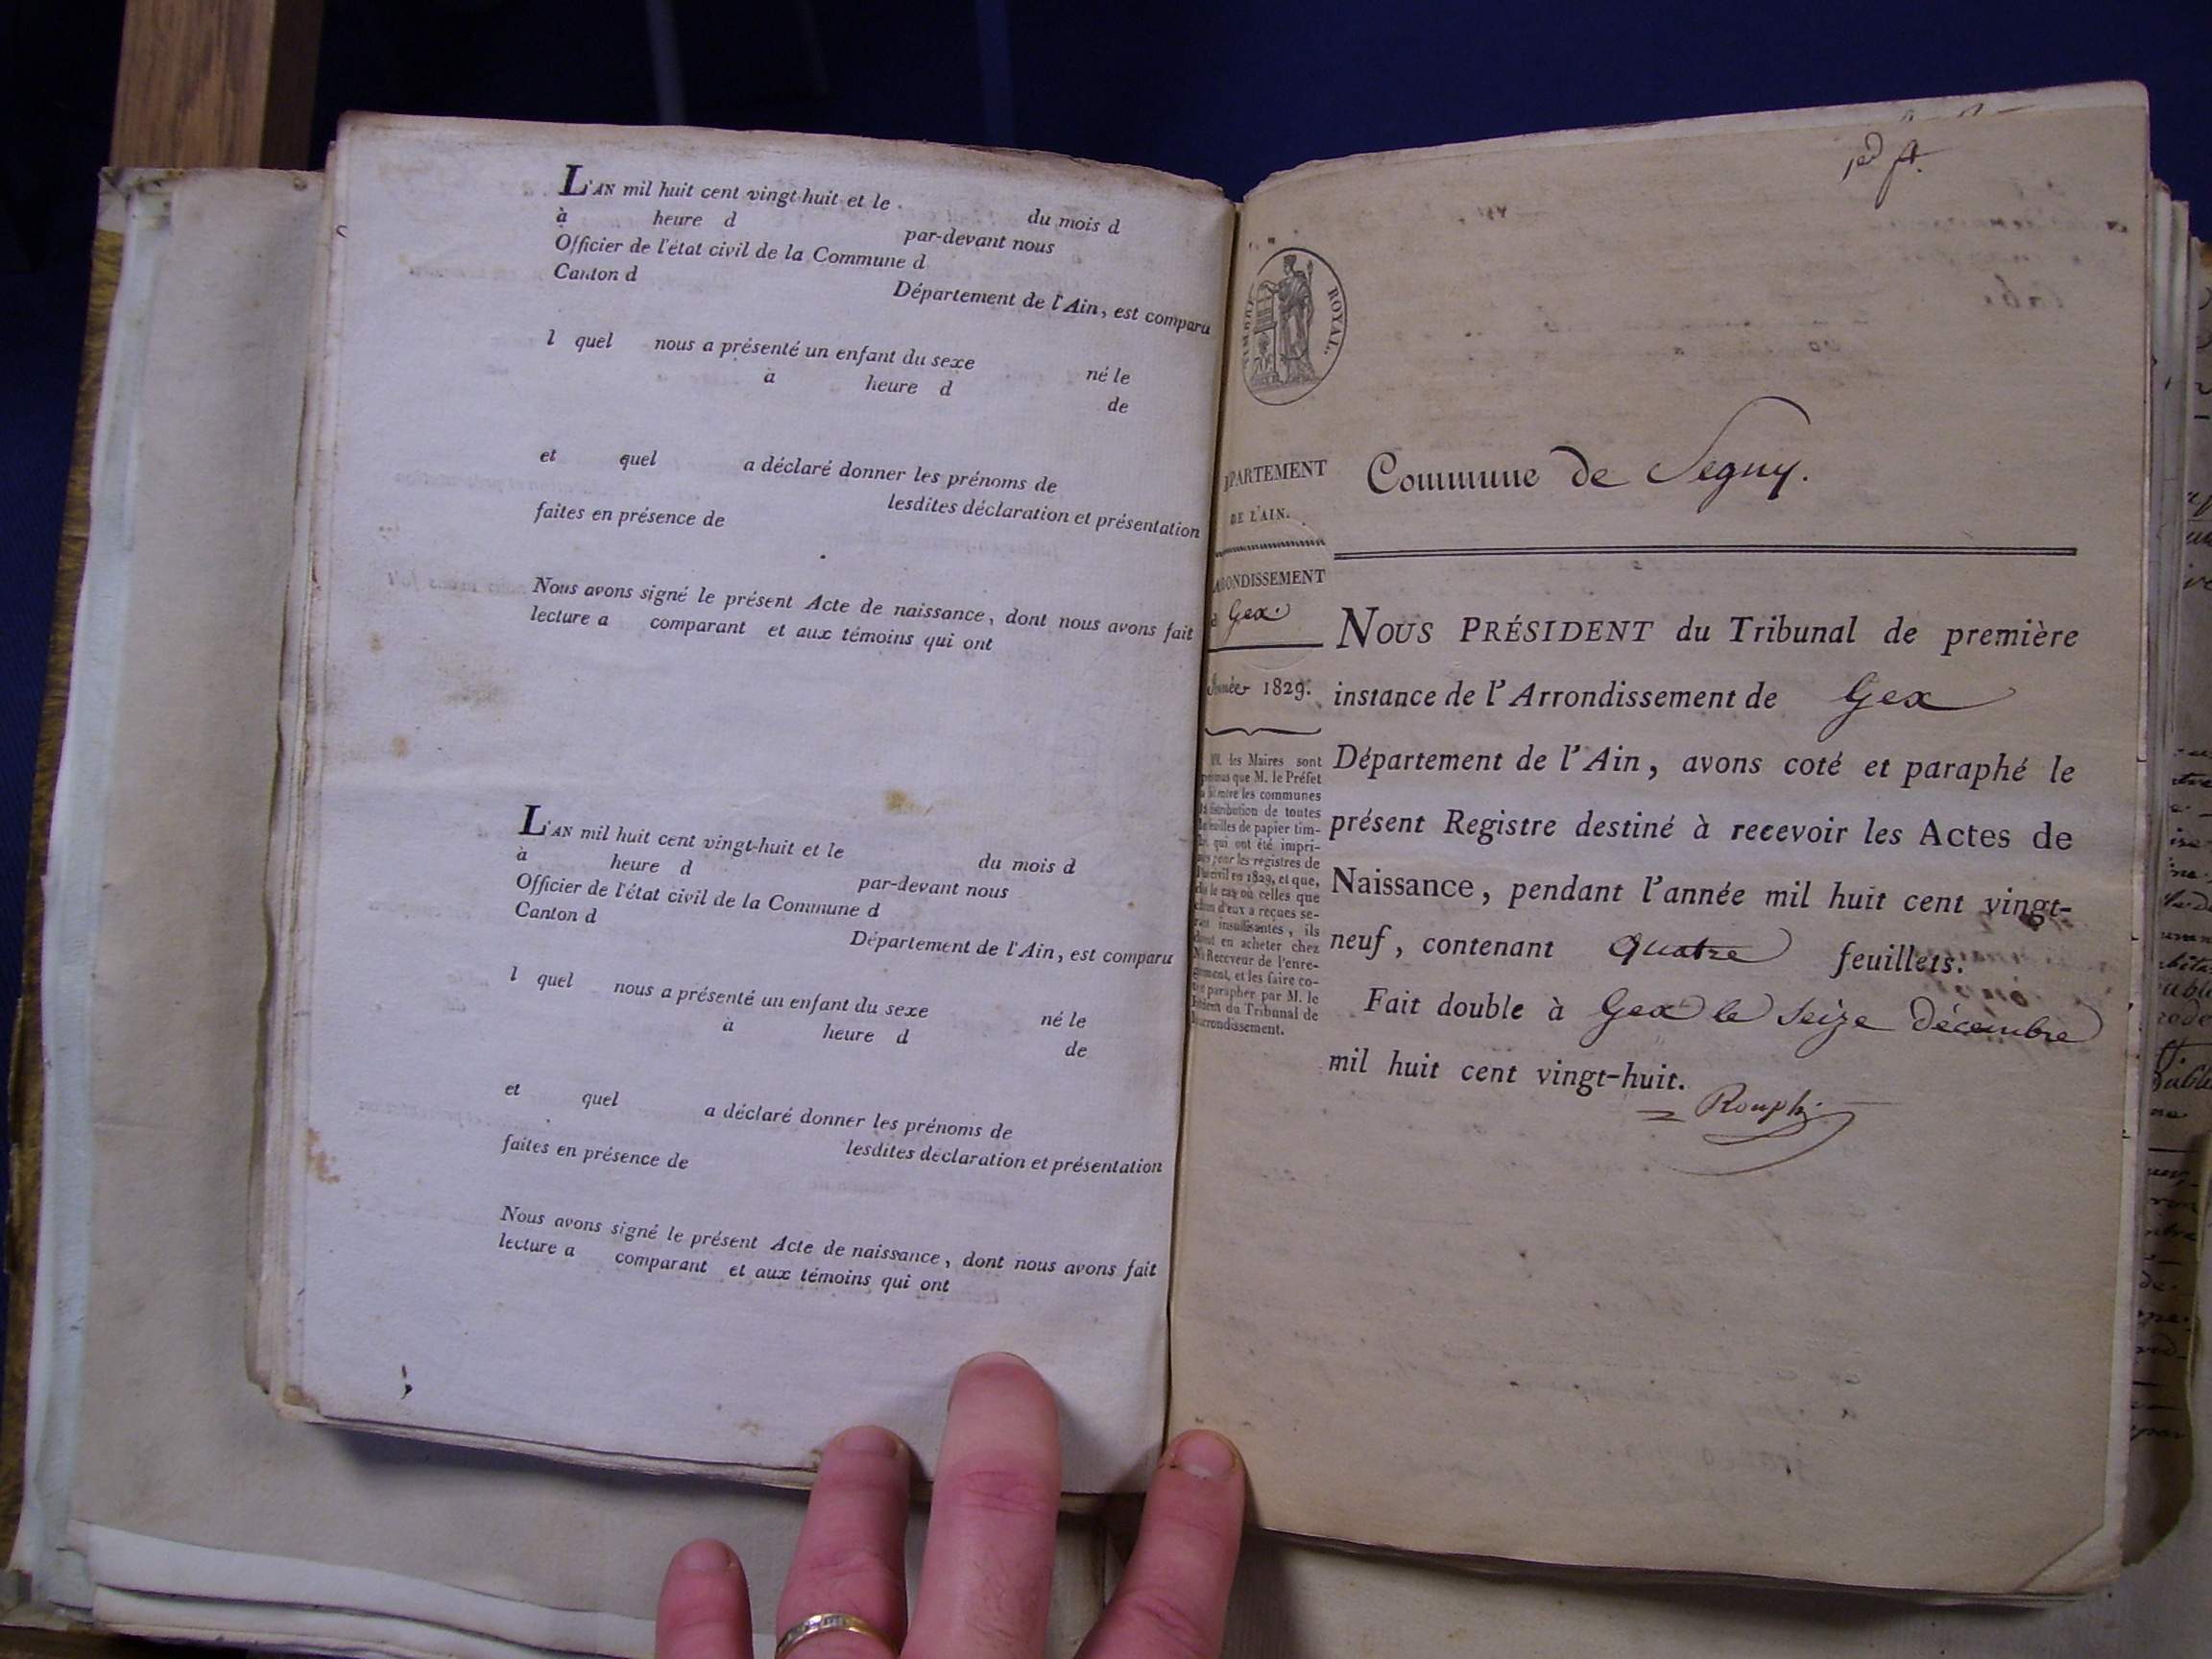 L'AN mil huit cent vingt-huit et le du mois d
à heure d par-devant nous
Officier de l'état civil de la Commune d
Canton d Département de l'Ain, est comparu
l quel nous a présenté un enfant du sexe né le
à heure d de
et quel a déclaré donner les prénoms de
lesdites déclaration et présentation
faites en présence de
Nous avons signé le présent Acte de naissance, dont nous avons fait
lecture a comparant et aux témoins qui ont
L'AN mil huit cent vingt-huit et le du mois d
à heure d par-devant nous
Officier de l'état civil de la Commune d
Canton d Département de l'Ain, est comparu
l quel nous a présenté un enfant du sexe né le
à heure d de
et quel a déclaré donner les prénoms de
lesdites déclaration et présentation
faites en présence de
Nous avons signé le présent Acte de naissance, dont nous avons fait
lecture a comparant et aux témoins qui ont
TIMBRE ROYAL.
PARTEMENT
DE L'AIN.
ONDISSEMENT
Gex.
Année 1829.
MM. les Maires sont
que M. le Préfet
entre les communes
distribution de toutes
feuilles de papier tim-
qui ont été impri-
pour les registres de
civil en 1829, et que,
le cas où celles que
d'eux a reçues se-
insuffisantes, ils
en acheter chez
Receveur de l'enre-
et les faire co-
parapher par M. le
du Tribunal de
arrondissement.
Commune de Segny.
NOUS PRÉSIDENT du Tribunal de première
instance de l'Arrondissement de Gex
Département de l'Ain, avons coté et paraphé le
présent Registre destiné à recevoir les Actes de
Naissance, pendant l'année mil huit cent vingt-
neuf, contenant quatre feuillets.
Fait double à Gex le seize décembre
mil huit cent vingt-huit.